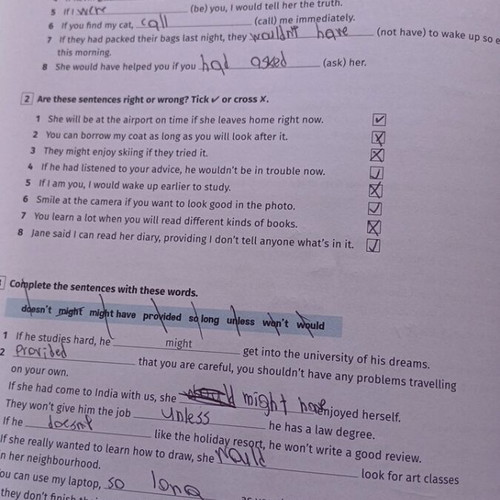 5 If I were (be) you, I would tell her the truth.
6 If you find my cat, call (call) me immediately.
7 If they had packed their bags last night, they wouldn't have (not have) to wake up so e
this morning.
8 She would have helped you if you had asked (ask) her.
2 Are these sentences right or wrong? Tick ✓ or cross ✗.
1 She will be at the airport on time if she leaves home right now. ✓
2 You can borrow my coat as long as you will look after it. ✗
3 They might enjoy skiing if they tried it. ✗
4 If he had listened to your advice, he wouldn't be in trouble now. ✓
5 If I am you, I would wake up earlier to study. ✗
6 Smile at the camera if you want to look good in the photo. ✓
7 You learn a lot when you will read different kinds of books. ✗
8 Jane said I can read her diary, providing I don't tell anyone what's in it. ✓
Complete the sentences with these words.
doesn't might might have provided so long unless won't would
1 If he studies hard, he might get into the university of his dreams.
2 Provided that you are careful, you shouldn't have any problems travelling
on your own.
If she had come to India with us, she might have enjoyed herself.
They won't give him the job unless he has a law degree.
If he doesn't like the holiday resort, he won't write a good review.
If she really wanted to learn how to draw, she would look for art classes
in her neighbourhood.
You can use my laptop, so long as
they don't finish th